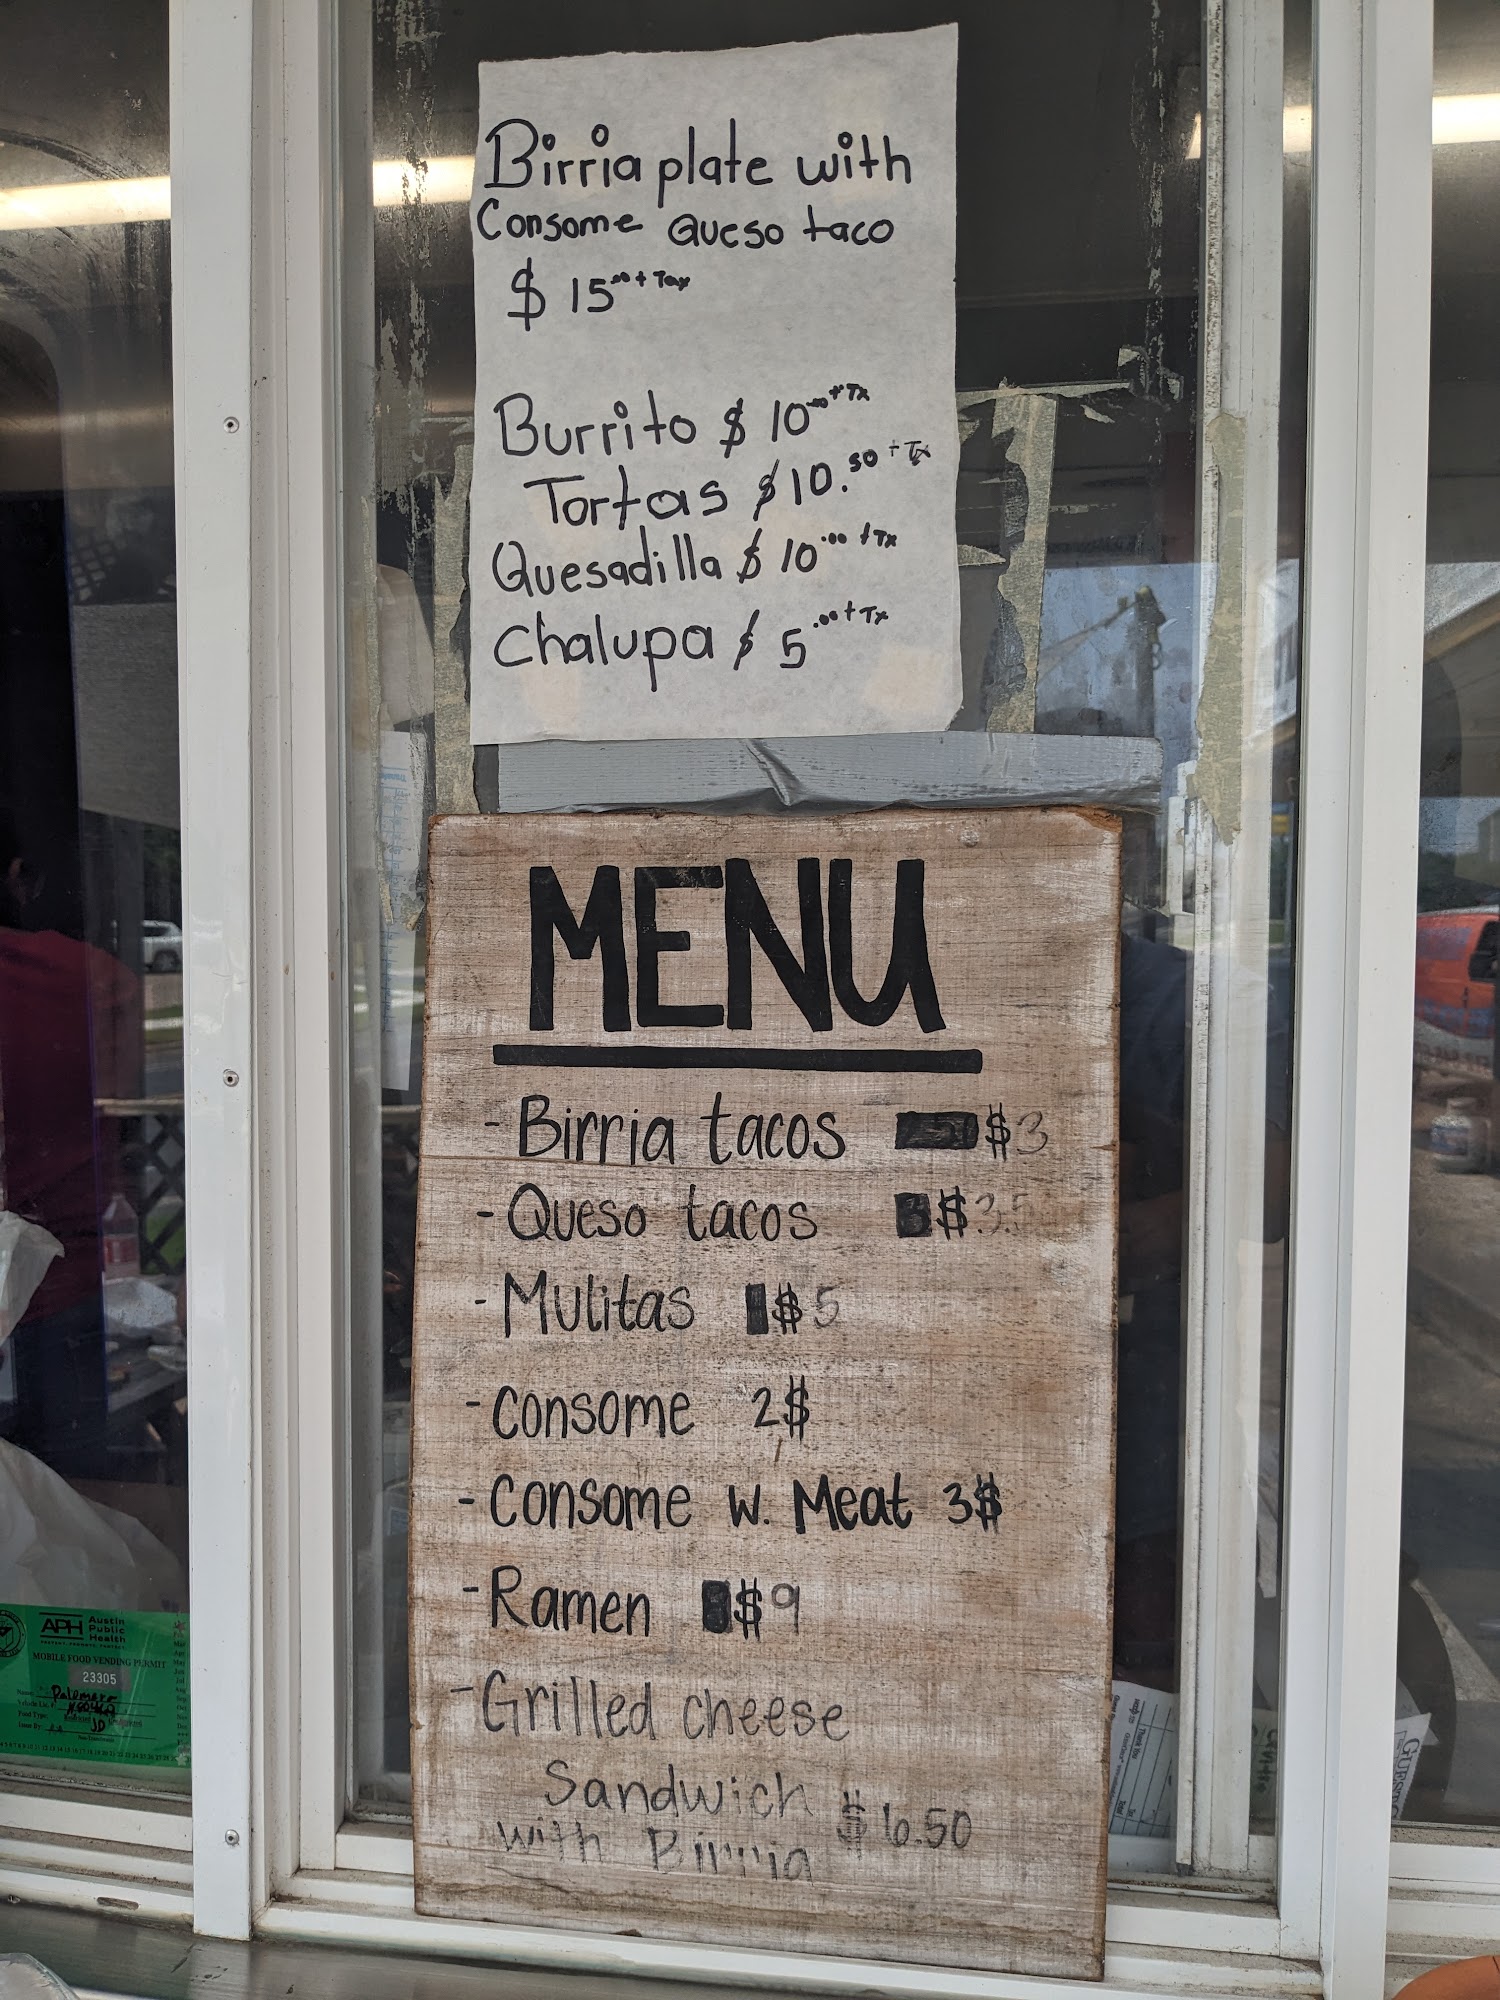 Birria plate with
Consome Queso taco
$ 15.00 + Tax
Burrito $ 10.00 + Tx
Tortas $ 10.50 + Tx
Quesadilla $ 10.00 + Tx
Chalupa $ 5.00 + Tx
MENU
- Birria tacos $3
- Queso tacos $3.5
- Mulitas $5
- Consome 2$
- Consome w. Meat 3$
- Ramen $9
- Grilled cheese
Sandwich
with Birria $6.50
APH Austin
Public
Health
MOBILE FOOD VENDING PERMIT
23305